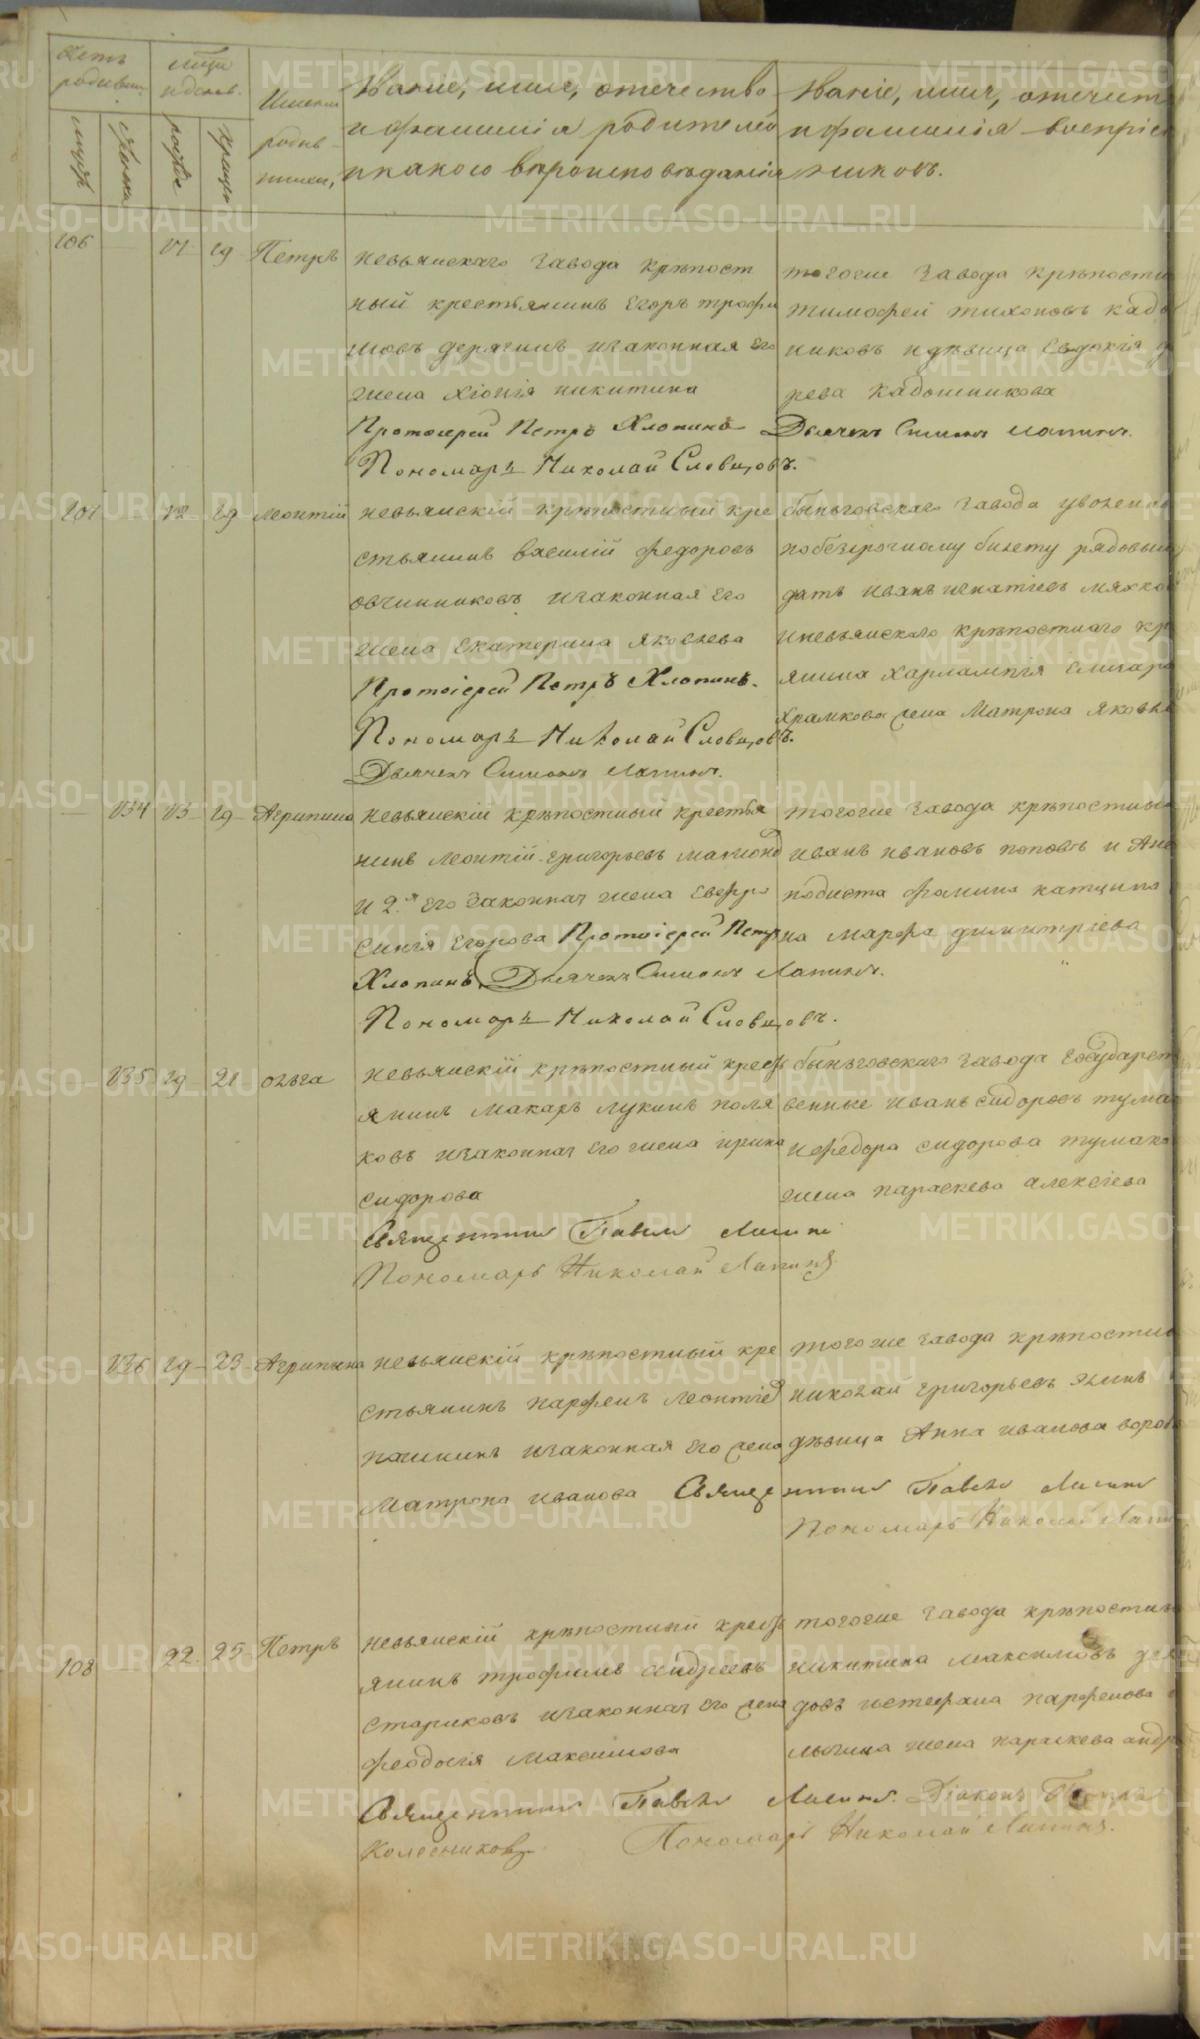 Счетъ родивш. мѣсяц и день.
Имена родив-шихся,
Званіе, имя, отечество и фамилія родителей и какого вѣроисповѣданія
Званіе, имя, отечест и фамилія воспріем никовъ.
106 — 17 19 Петръ
невьянскаго завода крѣпост
ный крестьянинъ Егоръ трофи
мовъ дерягинъ изаконная его
жена хіонія никитина
Протоіерей Петръ Хлопинъ Дьячекъ Симонъ Лапинъ.
Пономарь Николай Словцовъ.
тогоже завода крѣпостны
тимофей тихоновъ кадо
никовъ идѣвица Евдокія
рева кадошникова
107 — 12 19 Леонтій
невьянскій крѣпостный кре
стьянинъ василій федоровъ
овчинниковъ изаконная его
жена екатерина яковлева
Протоіерей Петръ Хлопинъ.
Пономарь Николай Словцовъ.
Дьячекъ Симонъ Лапинъ.
быньговскаго завода уволенны
побезсрочному билету рядовый
датъ иванъ игнатіевъ мяхко
иневьянскаго крѣпостнаго кр
янина харлампія
храмкова жена Матрона яковле
— 134 13 19 Агрипина
невьянскій крѣпостный крестья
нинъ леонтій григорьевъ
и 2.я его законная жена евфро
синія егорова Протоіерей Петръ
Хлопинъ, Дьячекъ Симонъ Лапинъ.
Пономарь Николай Словцовъ.
тогоже завода крѣпостные
иванъ ивановъ поповъ и
подиста фомина катцына
на марфа димитріева
— 135 19 21 ольга
невьянскій крѣпостный крест
янинъ макаръ лукинъ поля
ковъ изаконная его жена ирина
сидорова
Священникъ Павелъ
Пономарь Николай Лапинъ
быньговскаго завода государст
венные иванъ сидоровъ тума
ифедора сидорова тумако
жена параскева алексіева
136 19 23 Агрипина
невьянскій крѣпостный кре
стьянинъ парфенъ леонтіев
пашнинъ изаконная его жена
Матрона иванова Священникъ Павелъ
Пономарь Николай Лапин
тогоже завода крѣпостны
николай григорьевъ
дѣвица Анна иванова вороб
108 — 22 25 Петръ
невьянскій крѣпостный крест
янинъ трофимъ андреевъ
стариковъ изаконная его жена
феодосія максимова
Священникъ Павелъ Діаконъ
Колесниковъ Пономарь Николай Лапинъ.
тогоже завода крѣпостны
никитина максимовъ
довъ истефана парфенова
лыгина жена параскева андр
METRIKI.GASO-URAL.RU